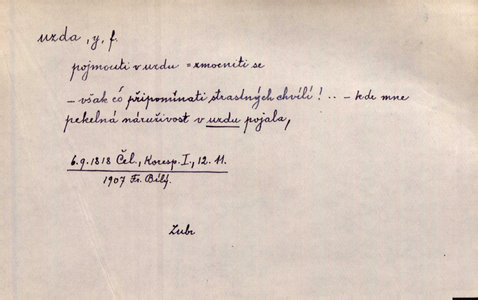 uzda, y, f.
pojmouti v uzdu = zmocniti se
– však čó připomínati strastných chvílí! .. – kde mne
pekelná náruživost v uzdu pojala,
6.9.1818 Čel., Koresp. I., 12. 11.
1907 Fr. Bílý.
Zubr